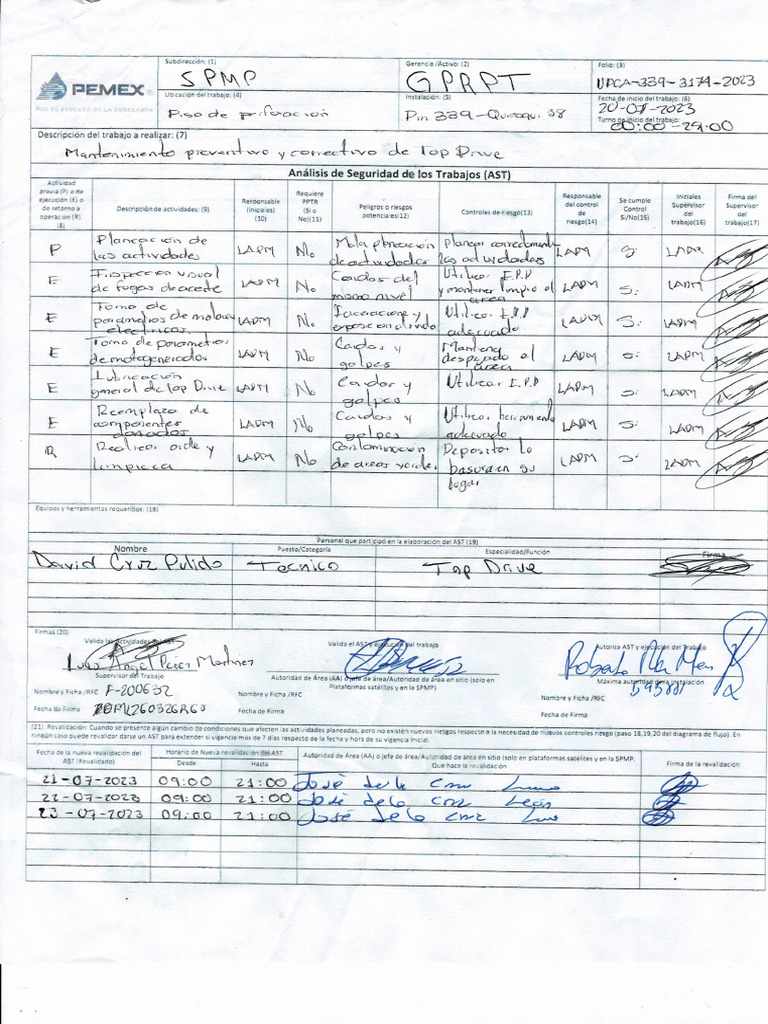 PEMEX®
POR EL RESCATE DE LA SOBERANÍA
Subdirección: (1)
SPMP
Gerencia/Activo: (2)
GPRPT
Folio: (3)
UPCA-339-3174-2023
Ubicación del trabajo: (4)
Piso de perforacion
Instalación: (5)
Pm 339-
38
Fecha de inicio del trabajo: (6)
20-07-2023
Turno de inicio del trabajo:
Descripción del trabajo a realizar: (7)
Mantenimiento preventivo y correctivo de Top Drive
Análisis de Seguridad de los Trabajos (AST)
Actividad previa (P) o de ejecución (E) o de retorno a operación (R) (8)
Descripción de actividades: (9)
Responsable (Iniciales) (10)
Requiere PPTR (Si o No)(11)
Peligros o riesgos potenciales(12)
Controles de riesgo(13)
Responsable del control de riesgo(14)
Se cumple Control Si/No(15)
Iniciales Supervisor del trabajo(16)
Firma del Supervisor del trabajo(17)
P Planeacion de las actividades LAPM No Mala planeacion de actividades Planear correctamente las actividades LAPM Si LAPM
E Inspeccion visual de fugas de aceite LAPM No Caidas del mismo nivel Utilizar E.P.P y mantener limpio el area LAPM Si LAPM
E Toma de parametros de motores electricos LAPM No y exposicion al ruido Utilizar E.P.P adecuado LAPM Si LAPM
E Toma de parametros de motogenerador LAPM No Caidas y golpes despejado el area LAPM Si LAPM
E Lubricacion general de Top Drive LAPM No Caidas y golpes Utilizar E.P.P LAPM Si LAPM
E Reemplazo de componentes dañados LAPM No Caidas y golpes Utilizar herramienta adecuada LAPM Si LAPM
R Realizar orde y limpieza LAPM No Contaminacion de areas verdes Depositar la basura en su lugar LAPM Si LAPM
Equipos y herramientas requeridos: (18)
Personal que participó en la elaboración del AST (19)
Nombre Puesto/Categoría Especialidad/Función Firma
David Cruz Pulido Tecnico Top Drive
Firmas (20)
Valida las Actividades del AST
Valida el AST y ejecución del trabajo
Autoriza AST y ejecución del Trabajo
Luis Angel Perez Martinez
Supervisor del Trabajo
Autoridad de Área (AA) o jefe de área/Autoridad de área en sitio (solo en Plataformas satélites y en la SPMP)
Máxima autoridad de la instalación
Nombre y Ficha /RFC F-200632
Nombre y Ficha /RFC
Nombre y Ficha /RFC
Fecha de Firma
Fecha de Firma
Fecha de Firma
(21). Revalidación: Cuando se presente algún cambio de condiciones que afecten las actividades planeadas, pero no existen nuevos riesgos respecto a la necesidad de nuevos controles riesgo (paso 18,19,20 del diagrama de flujo). En
ningún caso puede revalidar darse un AST para extender si vigencia más de 7 días respecto de la fecha y hora de su vigencia inicial.
Fecha de la nueva revalidación del AST (Revalidado)
Horario de Nueva revalidación del AST
Desde Hasta
Autoridad de Área (AA) o jefe de área/Autoridad de área en sitio (solo en plataformas satélites y en la SPMP, Que hace la revalidación
Firma de la revalidación
21-07-2023 09:00 21:00 José de la Cruz
22-07-2023 09:00 21:00 José de la Cruz León
23-07-2023 09:00 21:00 José de la Cruz